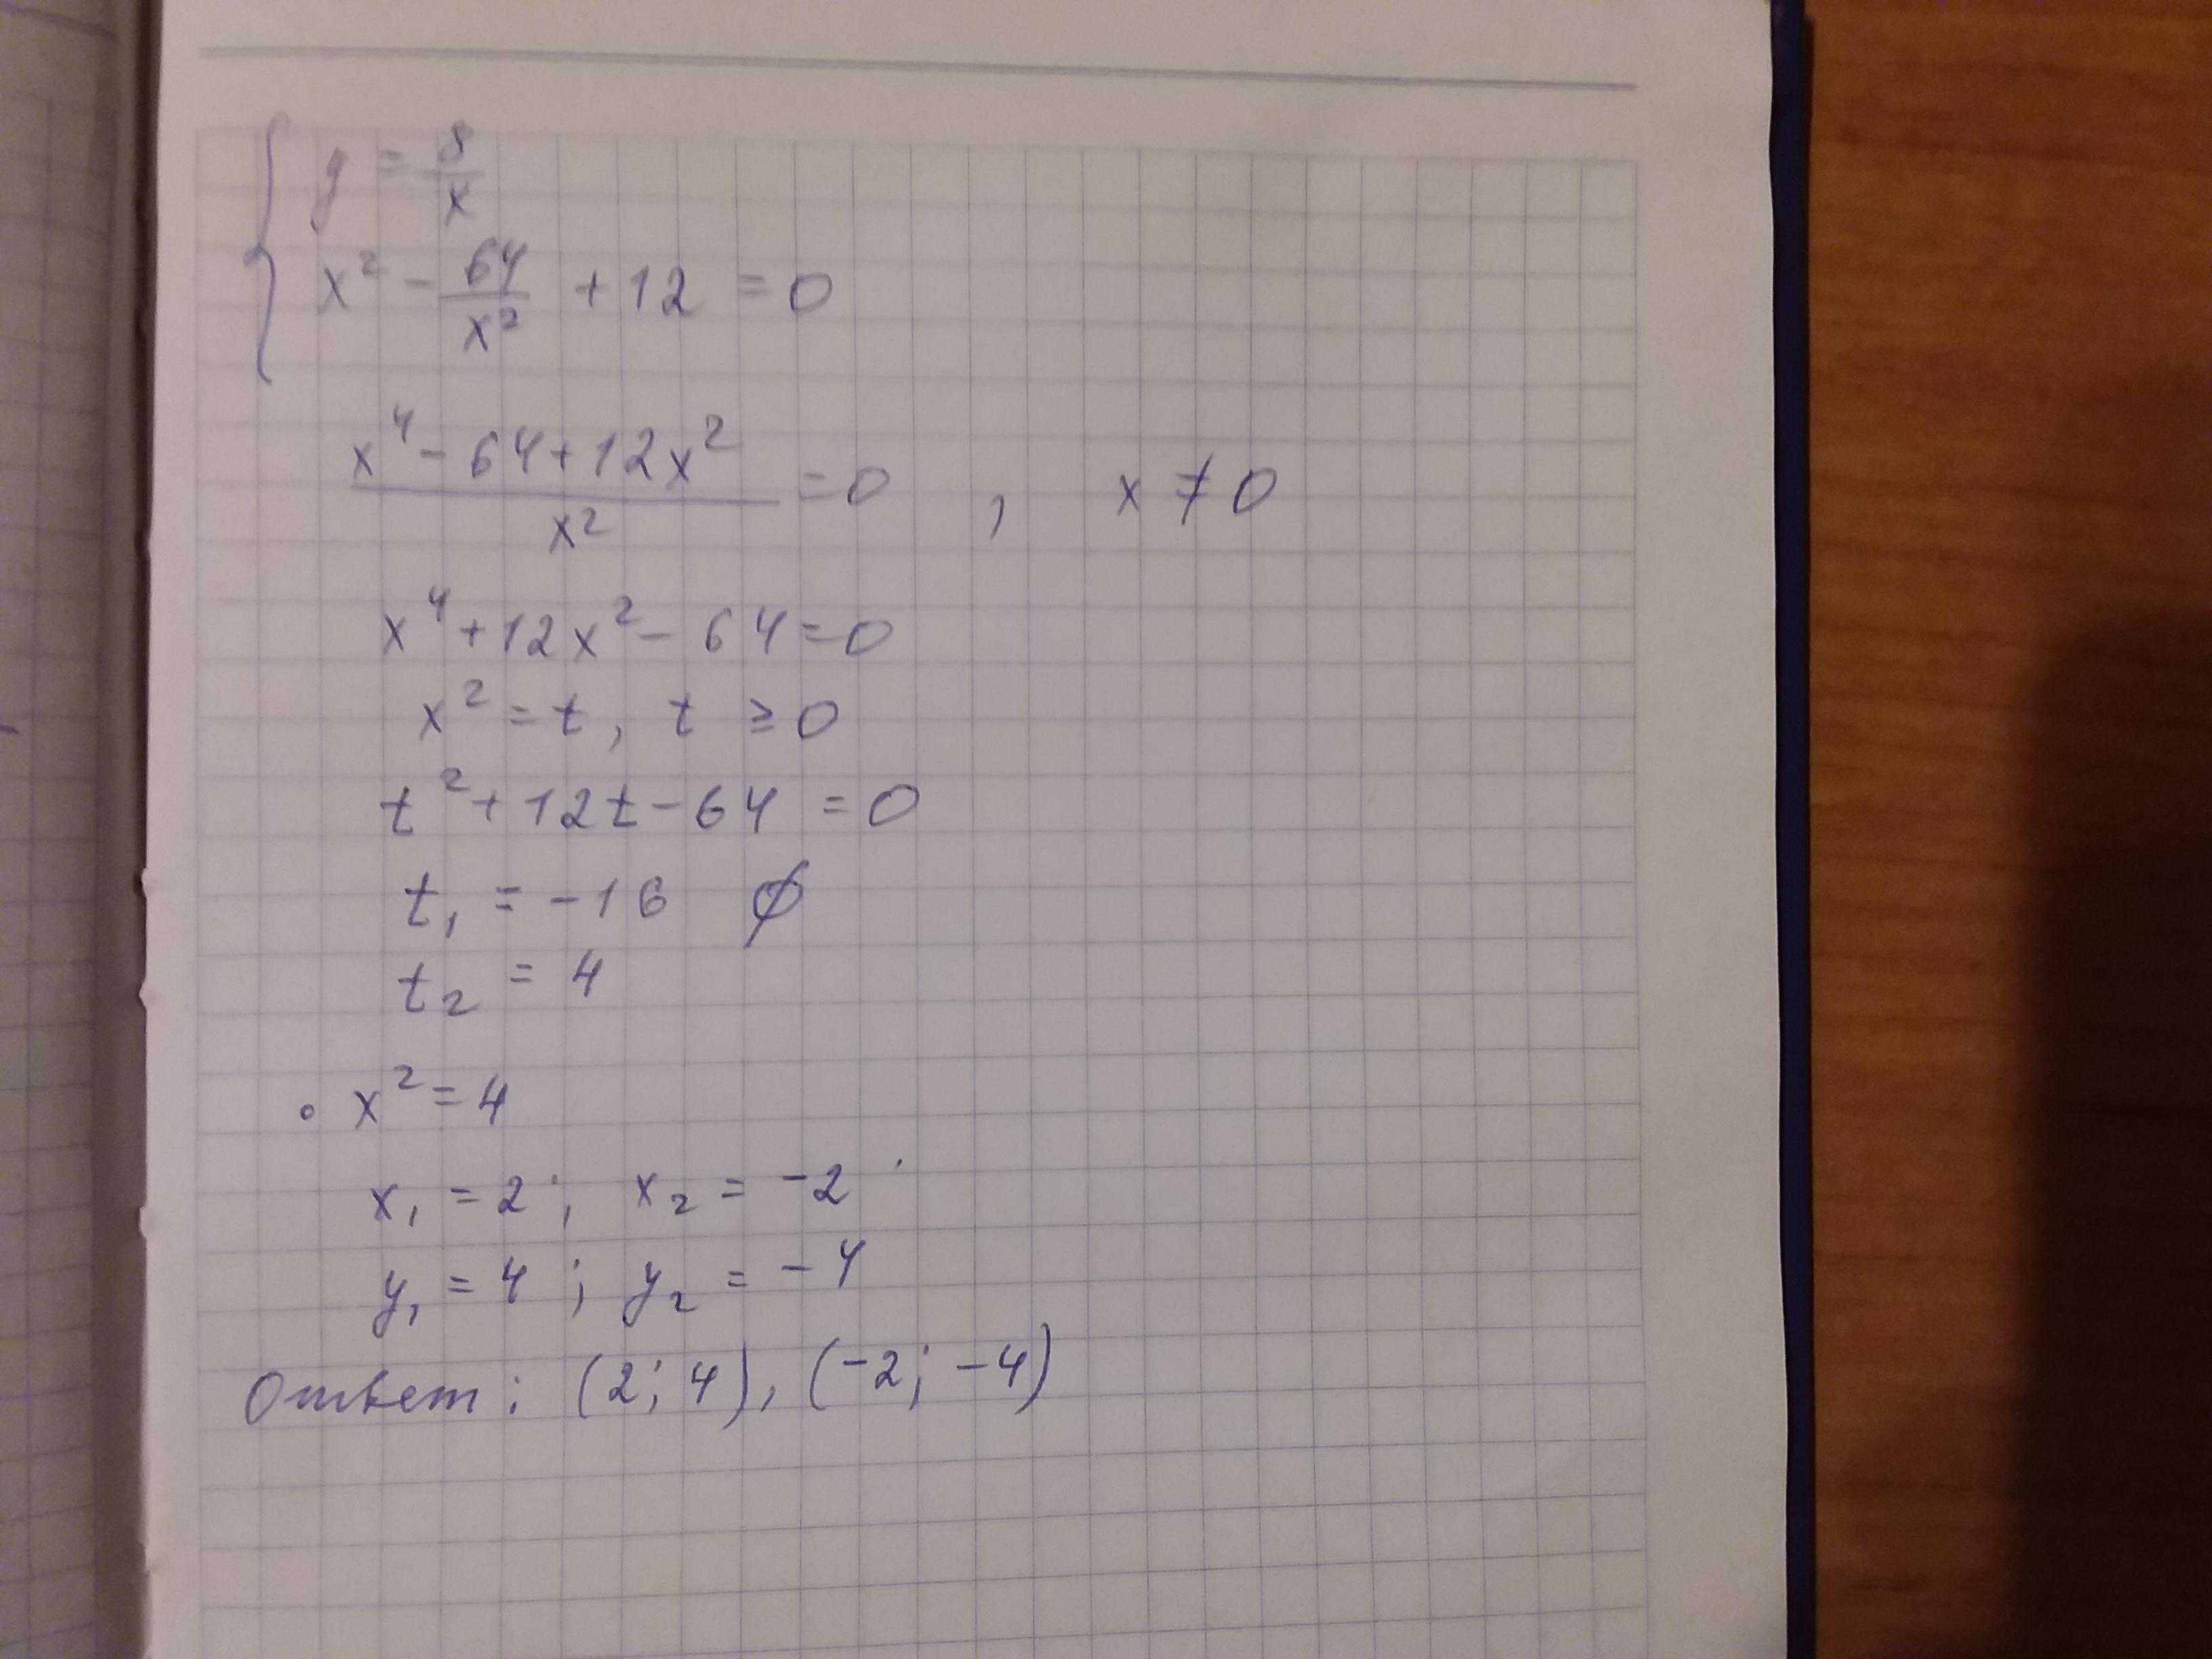 y = 8/x
x² - 64/x² + 12 = 0
(x⁴ - 64 + 12x²)/x² = 0 , x ≠ 0
x⁴ + 12x² - 64 = 0
x² = t, t ≥ 0
t² + 12t - 64 = 0
t₁ = -16 ∅
t₂ = 4
∘ x² = 4
x₁ = 2 ; x₂ = -2
y₁ = 4 ; y₂ = -4
Ответ: (2; 4), (-2; -4)